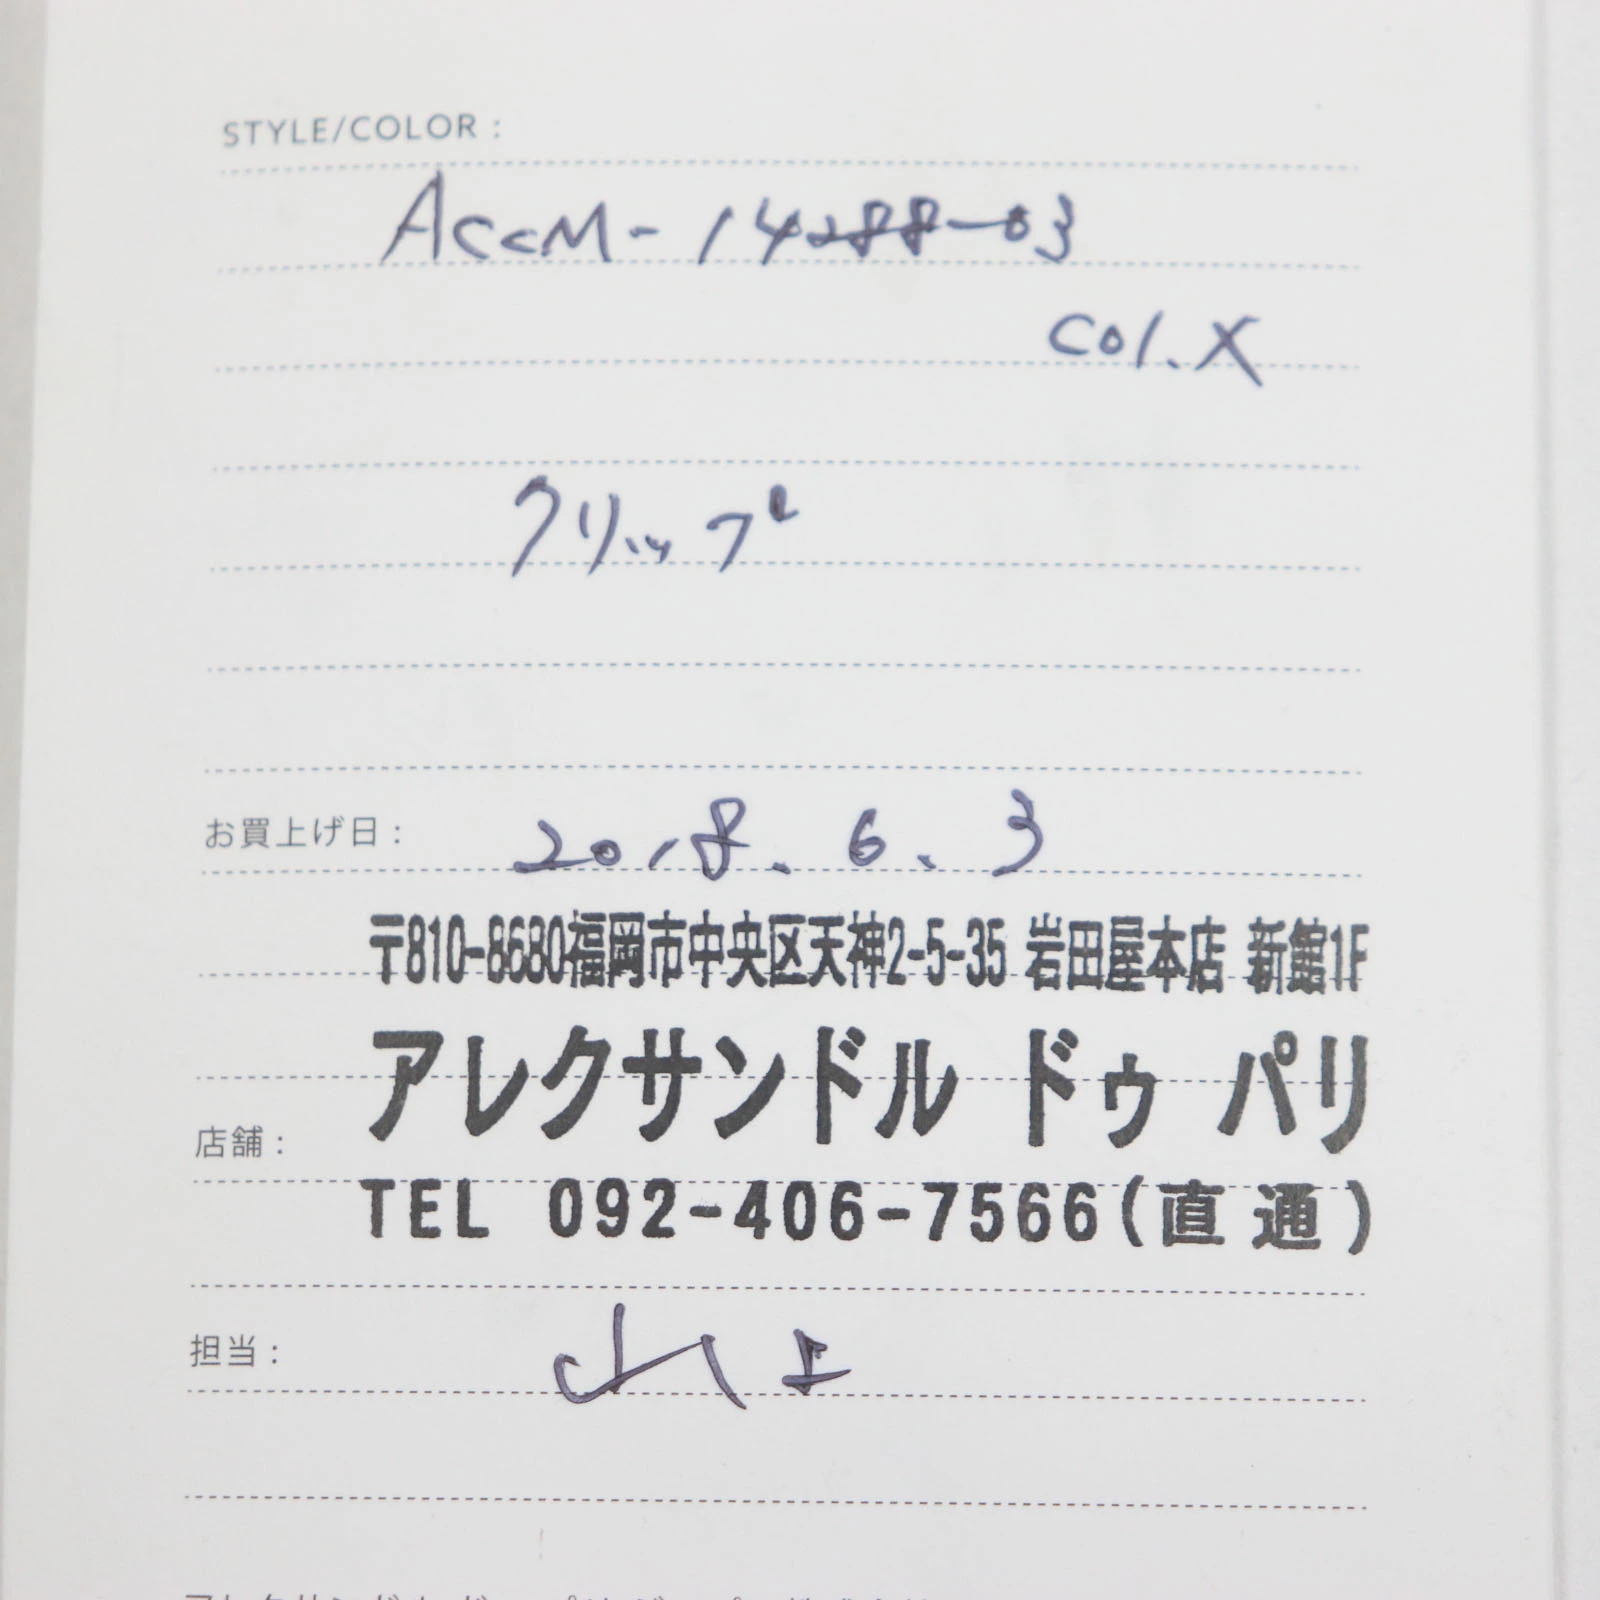 STYLE/COLOR :
ACCM-14288-03
COl. X
クリップ
お買上げ日 : 2018. 6. 3
〒810-8680福岡市中央区天神2-5-35 岩田屋本店 新館1F
アレクサンドル ドゥ パリ
店舗 :
TEL 092-406-7566(直通)
担当 : 山上